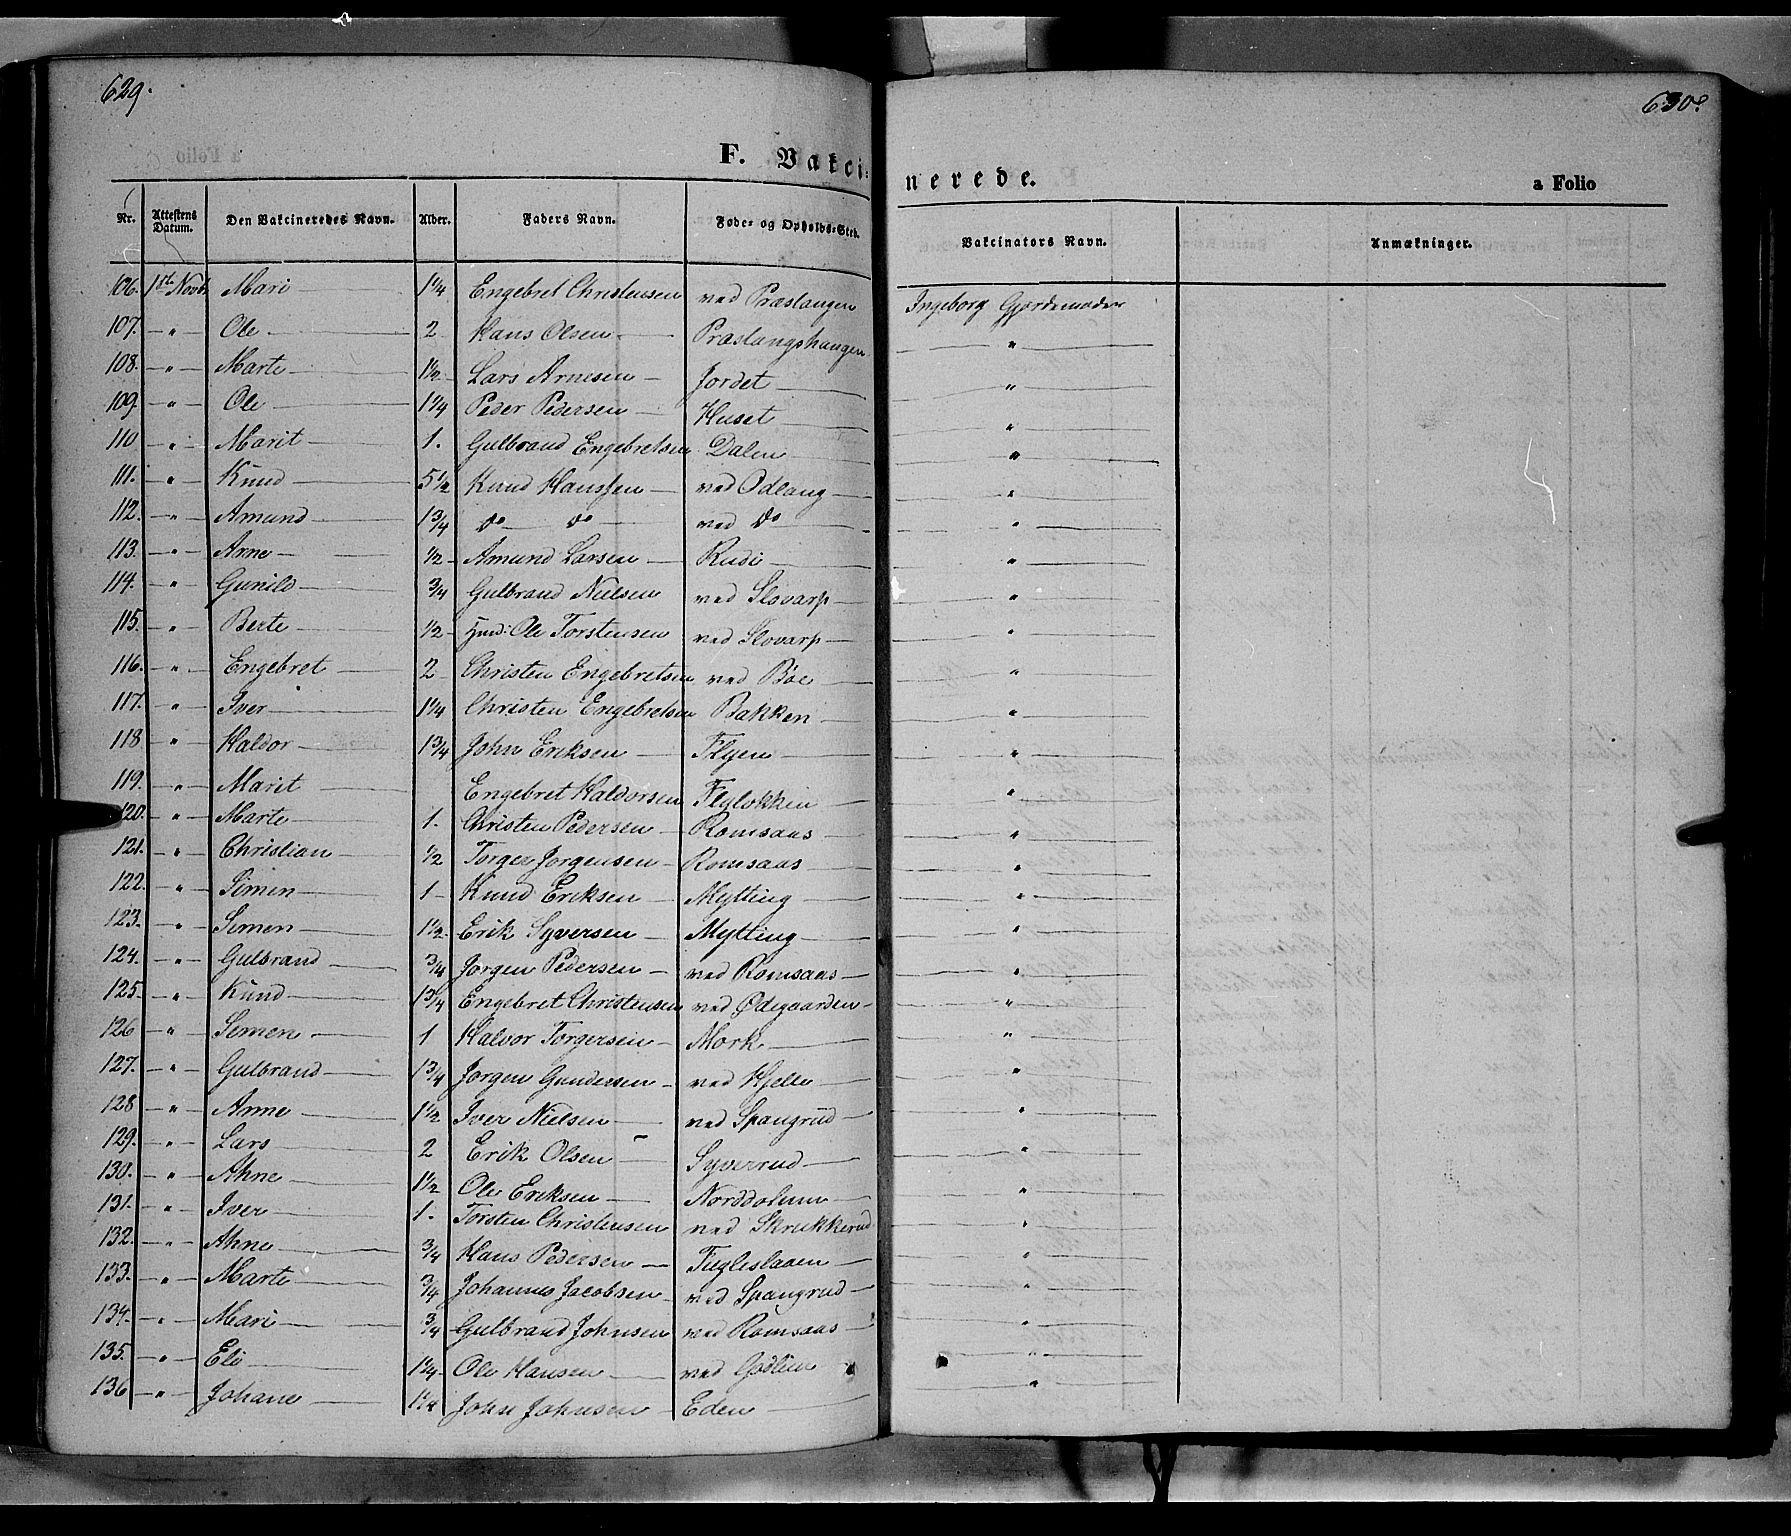 629.
630.
F. Vakcinerede.
a Folio
Nr. Attestens Datum. Den Vakcineredes Navn. Alder. Faders Navn. Føde- og Opholds-Sted. Vakcinators Navn. Anmækninger.
106. 1ste Novbr Mari 1 1/4 Engebret Christensen ved Præstangen Ingeborg Gjordemoder
107. — " — Ole 2 Hans Olsen Præstangshaugen "
108. — " — Marte 1 1/2 Lars Arnesen Jordet "
109. — " — Ole 1 1/4 Peder Pedersen Huset "
110 — " — Marit 1. Gulbrand Engebretsen Dalen "
111. — " — Knud 5 1/2 Knud Hanssen ved Odlang "
112. — " — Amund 1 3/4 do do ved do "
113. — " — Arne 1/2 Amund Larsen Rudi "
114. — " — Gunild 3/4 Gulbrand Nielsen ved Slovarp "
115. — " — Berte 1/2 Ole Torstensen ved Slovarp "
116. — " — Engebret 2 Christen Engebretsen ved Bøe "
117. — " — Iver 1 1/4 Christen Engebretsen Bakken "
118 — " — Haldor 1 3/4 John Eriksen Flyen "
119. — " — Marit Engebret Haldorsen Flyløkken "
120. — " — Marte 1. Christen Pedersen Romsaas "
121. — " — Christian 1/2 Torger Jorgensen Romsaas "
122. — " — Simen 1 Knud Eriksen Mytting "
123. — " — Simen 1 1/2 Erik Syversen Mytting "
124. — " — Gulbrand 3/4 Jorgen Pedersen ved Romsaas "
125. — " — Knud 1 3/4 Engebret Christensen ved Ødegaarden "
126 — " — Simen 1 Halvor Torgersen Mork "
127. — " — Gulbrand 1 3/4 Jorgen Gundersen ved Hjelle "
128 — " — Anne 1 1/2 Iver Nielsen ved Spangrud "
129. — " — Lars 2 Erik Olsen Syverrud "
130. — " — Ahne 1 1/2 Ole Eriksen Norddolum "
131. — " — Iver 1. Torsten Christensen ved Skrukkerud "
132. — " — Ahne 3/4 Hans Pedersen Fugleslaaen "
133. — " — Marte 3/4 Johannes Jacobsen ved Spangrud "
134. — " — Mari 3/4 Gulbrand Johnsen ved Romsaas "
135. — " — Eli 1 1/4 Ole Hansen ved Godlien "
136 — " — Johane 1 1/4 John Johnsen Eden "